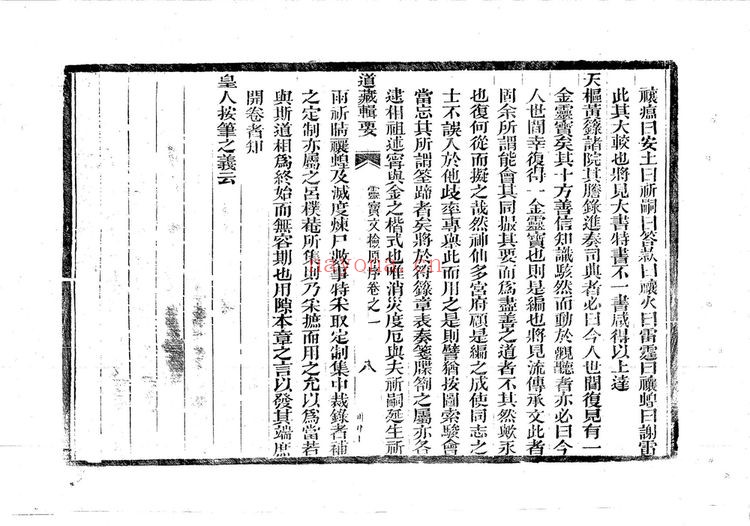 禳瘟曰安土曰祈嗣曰答款曰禳火曰雷霆曰禳蝗曰謝雷
此其大較也將見大書特書不一書咸得以上達
天樞黃籙諸院其騰錄進奏司典者必曰今人世間復見有一
金靈寶矣其十方善信知識駭然而動於覩聽者亦必曰今
人世間幸復得一金靈寶也則是編也將見流傳承文此者
固余所謂能會其同撮其要而爲盡善之道者不其然歟永
也復何從而擬之哉然神仙多宮府顧是編之成使同志之
士不誤入於他歧率專與此而用之是則譬猶按圖索驗會
當忘其所謂筌蹄者矣將於符籙章表奏箋牒劄之屬亦各
逮相祖述甯與金之楷式也惟消災度厄與夫祈嗣延生祈
道藏輯要
靈寶文檢原序卷之一
八
雨祈晴禳蝗及滅度煉尸數事特采取定制集中裁錄者補
之定制亦屬之呂樸菴所集由乃采摭而用之充以爲當若
與斯道相爲終始而無容期也用隙本章之言以發其端庶
開卷者知
皇人按筆之義云
nayona.cn